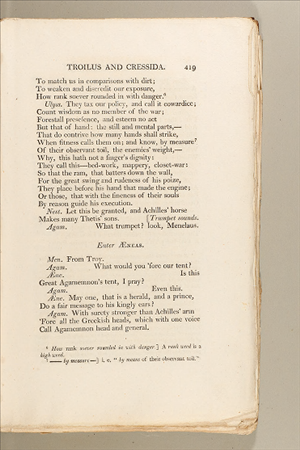 TROILUS AND CRESSIDA. 419
To match us in comparisons with dirt;
To weaken and discredit our exposure,
How rank soever rounded in with danger.⁶
Ulyss. They tax our policy, and call it cowardice;
Count wisdom as no member of the war;
Forestall prescience, and esteem no act
But that of hand: the still and mental parts,—
That do contrive how many hands shall strike,
When fitness calls them on; and know, by measure⁷
Of their observant toil, the enemies' weight,—
Why, this hath not a finger's dignity:
They call this—bed-work, mappery, closet-war:
So that the ram, that batters down the wall,
For the great swing and rudeness of his poize,
They place before his hand that made the engine;
Or those, that with the fineness of their souls
By reason guide his execution.
Nest. Let this be granted, and Achilles' horse
Makes many Thetis' sons. [Trumpet sounds.
Agam. What trumpet? look, Menelaus.
Enter ÆNEAS.
Men. From Troy.
Agam. What would you 'fore our tent?
Æne. Is this
Great Agamemnon's tent, I pray?
Agam. Even this.
Æne. May one, that is a herald, and a prince,
Do a fair message to his kingly ears?
Agam. With surety stronger than Achilles' arm
'Fore all the Greekish heads, which with one voice
Call Agamemnon head and general.
⁶ How rank soever rounded in with danger.] A rank weed is a
high weed.
⁷ —— by measure—] i. e. "by means of their observant toil."